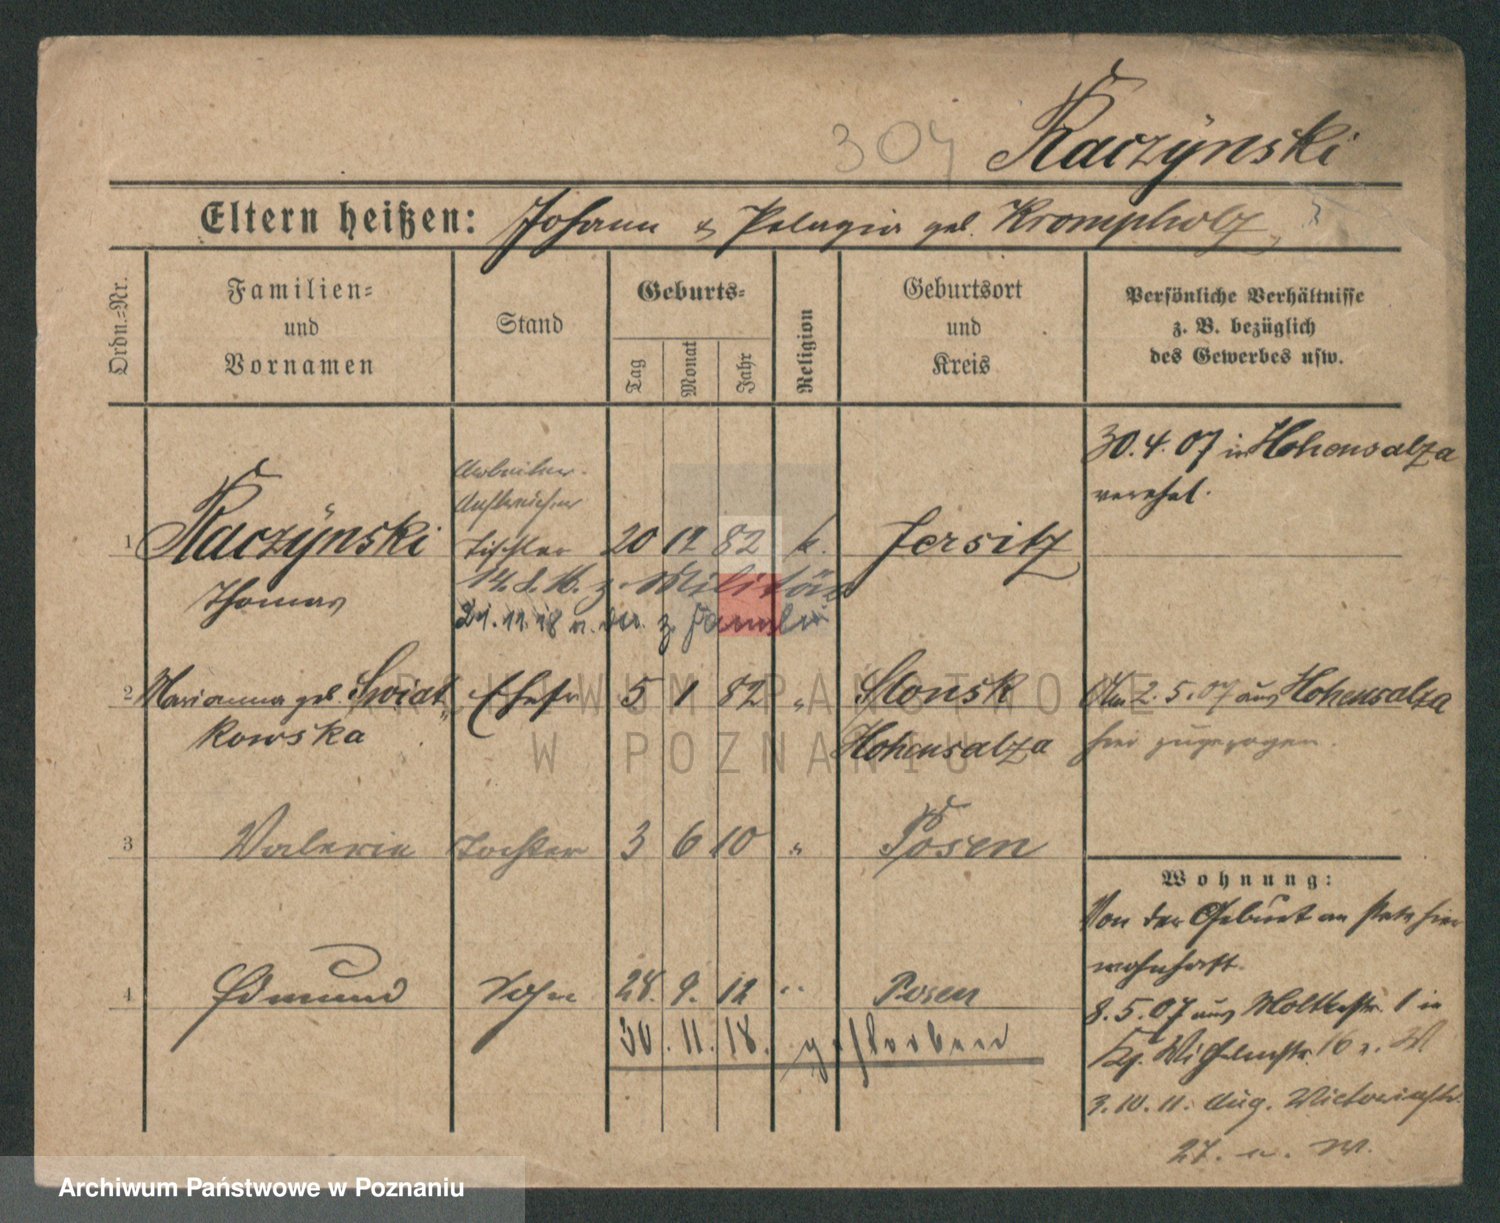 304 Kaczÿnski
Eltern heißen: Johann & Pelagia geb. Krompholz
Ordn.=Nr.
Familien=
und
Vornamen
Stand
Geburts=
Tag
Monat
Jahr
Religion
Geburtsort
und
Kreis
Persönliche Verhältnisse
z. B. bezüglich
des Gewerbes usw.
30.4.07 in Hohensalza
verehel.
Arbeiter
1 Kaczÿnski Tischler 20 12 82 k. Jersitz
Thomas
14.8.16. z. Militär
21.11.18 v. z. Familie
2 Marianna geb. Swiat Ehefr 5 1 82 " Slonsk
kowska Hohensalza
Am 2.5.07 aus Hohensalza
hier zugezogen.
3 Valerie Tochter 3 6 10 " Posen
4 Edmund Sohn 28. 9. 12 " Posen
30.11.18. gestorben
Wohnung:
Von der Geburt an stets hier
wohnhaft.
8.5.07 aus Moltkestr. 1 in
Wilhelmstr. 16
3.10.11. Aug. Victoriastr.
27. n. W.
ARCHIWUM PAŃSTWOWE
W POZNANIU
Archiwum Państwowe w Poznaniu